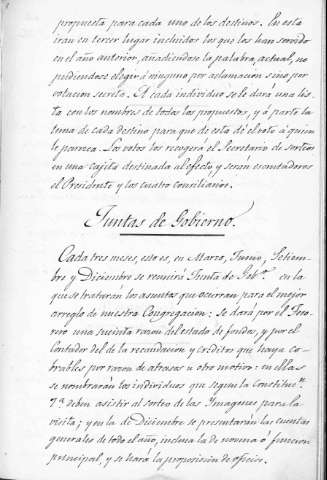 propuesta para cada uno de los destinos. En esta
irán en tercer lugar incluidos los que los han servido
en el año anterior, añadiendose la palabra, actual, no
pudiendose elegir á ninguno por aclamacion sino por
votacion secreta. A cada individuo se le dará una lis-
ta con los nombres de todos los propuestos, y á parte la
terna de cada destino para que de esta dé el voto á quien
le parezca. Los votos los recogerá el Secretario de sorteos
en una cajita destinada al efecto, y serán escrutadores
el Presidente y los cuatro consiliarios.
Juntas de Gobierno.
Cada tres meses, esto es, en Marzo, Junio, Setiem-
bre y Diciembre se reunirá Junta de Gobno. en la
que se tratarán los asuntos que ocurran para el mejor
arreglo de nuestra Congregacion: se dará por el Teso-
rero una sucinta razon del estado de fondos, y por el
Contador del de la recaudacion y creditos que haya co-
brables por razon de atrasos u otro motivo: en ellas
se nombrarán los individuos que segun la Constituc.n
7ª deben asistir al sorteo de las Imagenes para la
visita; y en la de Diciembre se presentarán las cuentas
generales de todo el año, inclusa la de novena ó funcion
principal, y se hará la proposicion de oficios.